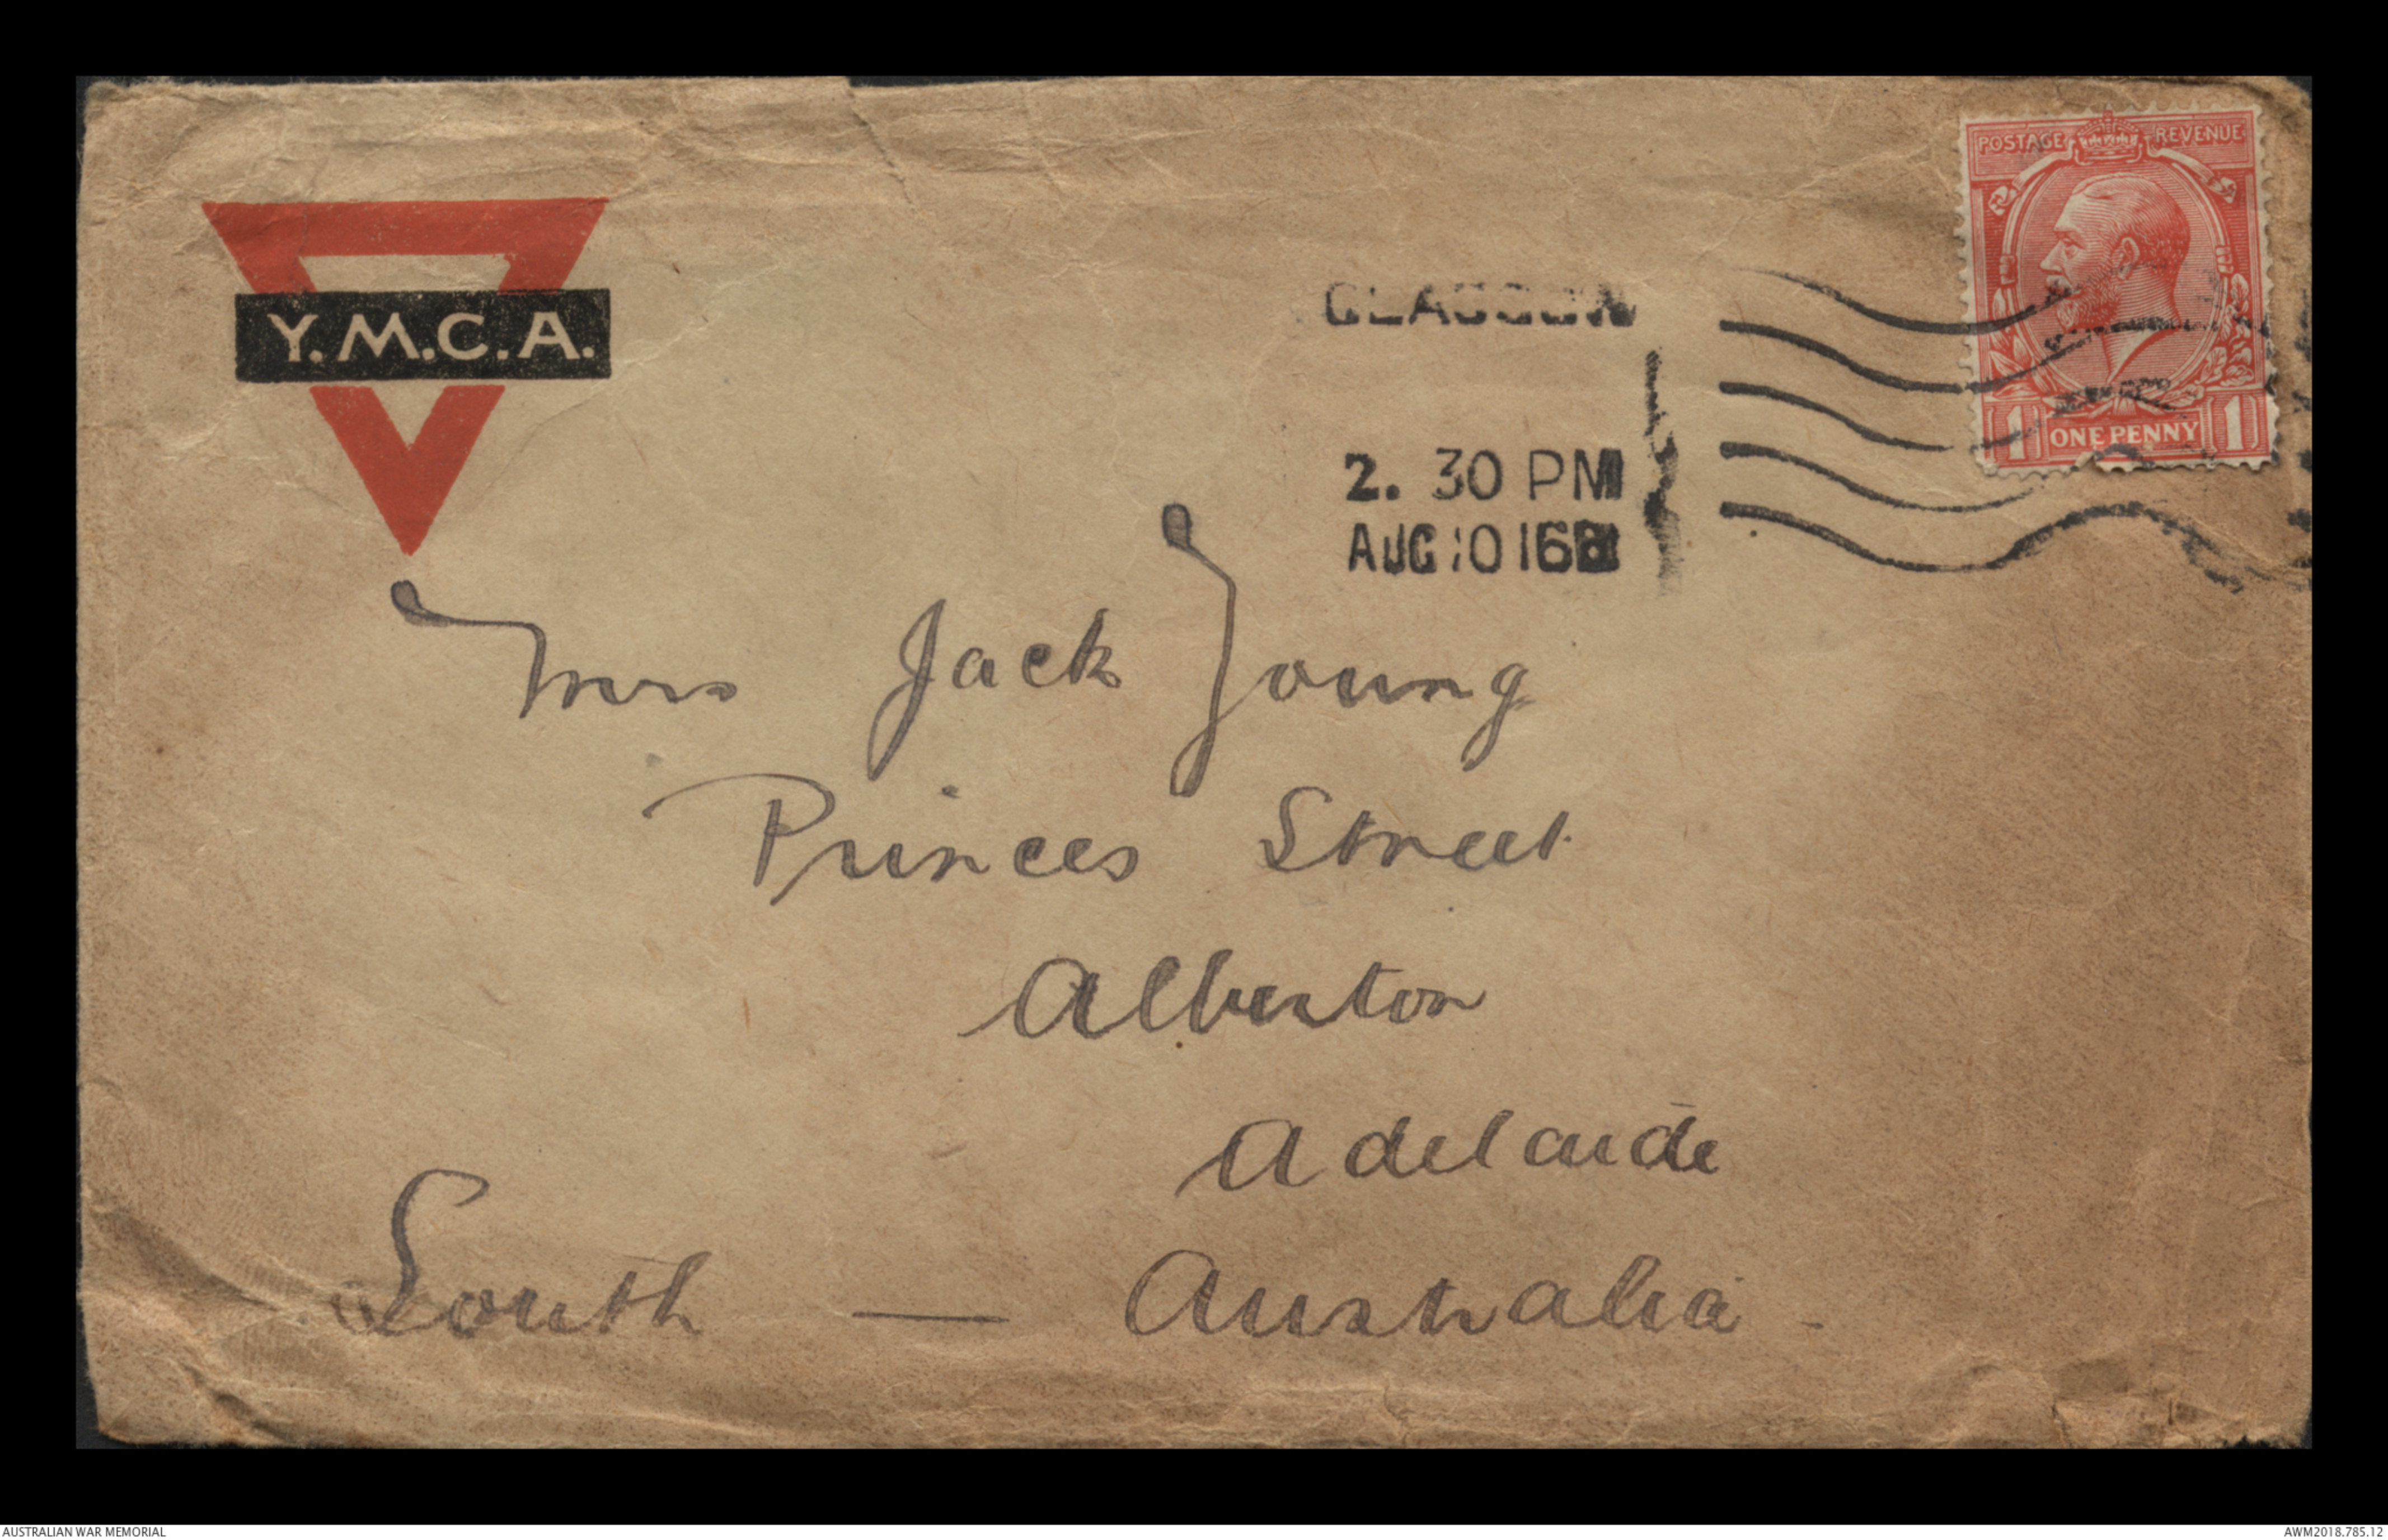 POSTAGE REVENUE
Y.M.C.A.
GLASGOW
2. 30 PM
AUG 10 16
1 ONE PENNY 1
Mrs Jack Young
Princes Street
Alberton
Adelaide
South — Australia -
AUSTRALIAN WAR MEMORIAL
AWM2018.785.12